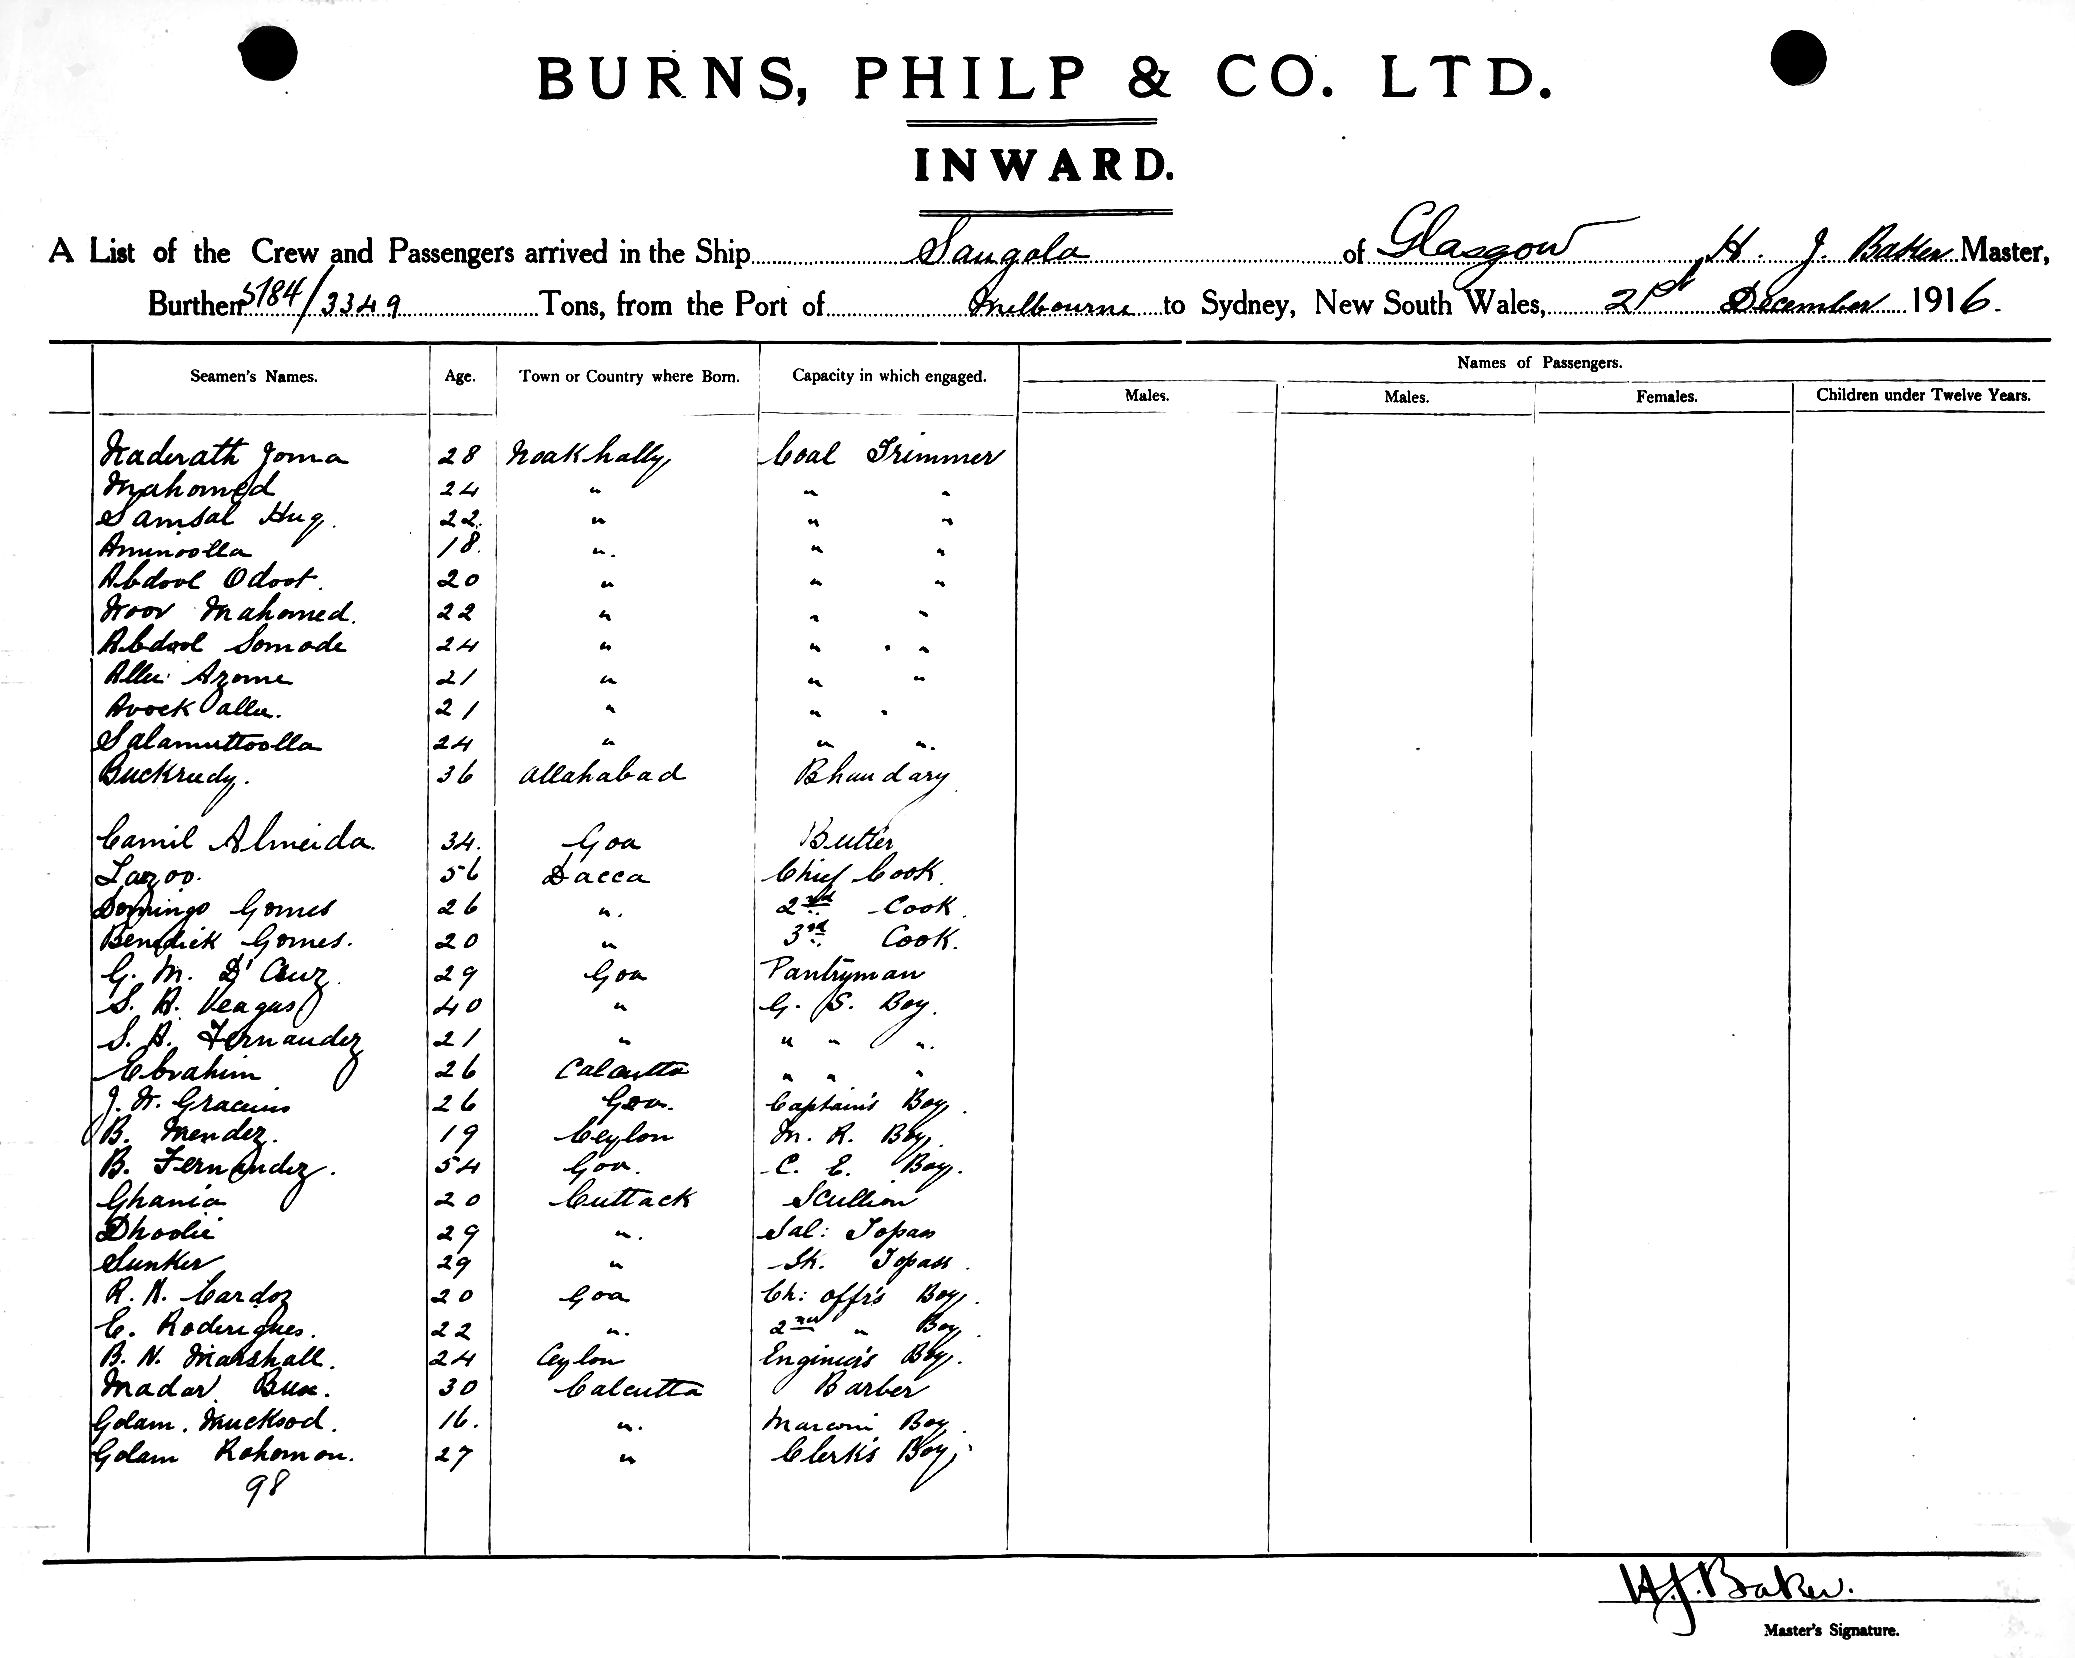 BURNS, PHILP & CO. LTD.
INWARD.
A List of the Crew and Passengers arrived in the Ship Sangola of Glasgow, H. J. Baker Master,
Burthen 5184/3349 Tons, from the Port of Melbourne to Sydney, New South Wales, 21st December 1916.
Seamen's Names. Age. Town or Country where Born. Capacity in which engaged. Names of Passengers.
Males. Males. Females. Children under Twelve Years.
Naderath Joma 28 Noakhally Coal Trimmer
Mahomed 24 " " "
Samsal Huq. 22. " " "
Aminoolla 18. " " "
Abdool Odoot. 20 " " "
Noor Mahomed. 22 " " "
Abdool Somode 24 " " "
Allie Azome 21 " " "
Arock allee. 21 " " "
Salamuttoolla 24 " " "
Buckrudy. 36 Allahabad Bhandary
Camil Almeida. 34. Goa Butler
56 Dacca Chief Cook.
Domingo Gomes 26 " 2nd Cook.
Benedick Gomes. 20 " 3rd Cook.
G. M. D'Cruz. 29 Goa Pantryman
S. A. Veagas 40 " G. S. Boy.
S. A. Fernandez 21 " " " "
Ebrahim 26 Calcutta " " "
J. N. Gracius 26 Goa. Captain's Boy.
B. Mendez. 19 Ceylon M. R. Boy.
B. Fernandez. 54 Goa. C. E. Boy.
Ghania 20 Cuttack Scullion
Dhoolie 29 " Sal: Topass
Sunker 29 " Topass.
R. N. Cardoz 20 Goa Ch: offr's Boy.
E. Roderigues. 22 " 2nd " Boy.
B. N. Marshall. 24 Ceylon Engineer's Boy.
Madar Bux. 30 Calcutta Barber
Golam. Mucksod. 16. " Marconi Boy.
Golam Rohomon. 27 " Clerk's Boy.
98
H. J. Baker.
Master's Signature.